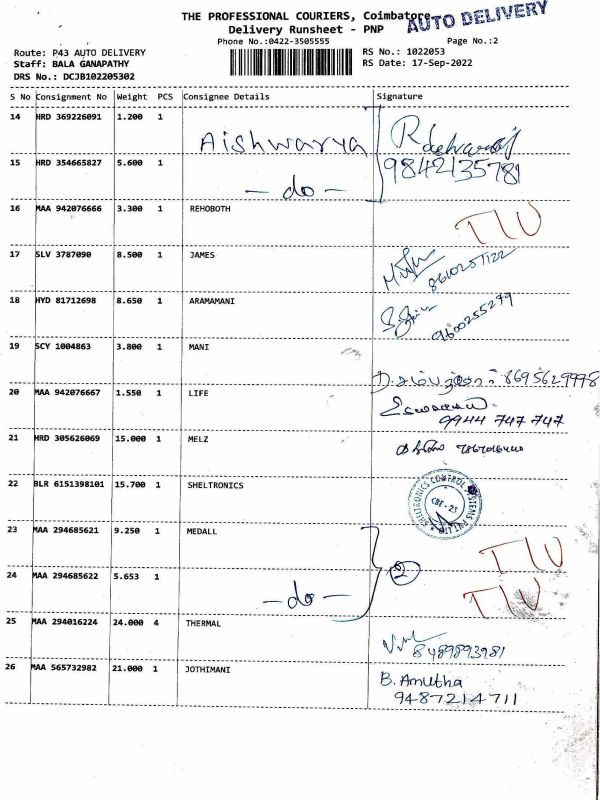 THE PROFESSIONAL COURIERS, Coimbatore
AUTO DELIVERY
Delivery Runsheet - PNP
Phone No.:0422-3505555 Page No.:2
Route: P43 AUTO DELIVERY RS No.: 1022053
Staff: BALA GANAPATHY RS Date: 17-Sep-2022
DRS No.: DCJB102205302
S No Consignment No Weight PCS Consignee Details Signature
14 HRD 369226091 1.200 1 Aishwarya
15 HRD 354665827 5.600 1 - do - 9842135781
16 MAA 942076666 3.300 1 REHOBOTH
17 SLV 3787090 8.500 1 JAMES
18 HYD 81712698 8.650 1 ARAMAMANI 9600255299
19 SCY 1004863 3.800 1 MANI 8695629998
20 MAA 942076667 1.550 1 LIFE 9944 747 747
21 HRD 305626069 15.000 1 MELZ
22 BLR 6151398101 15.700 1 SHELTRONICS SHELTRONICS CONTROL SYSTEMS PVT LTD CBE - 25
23 MAA 294685621 9.250 1 MEDALL
24 MAA 294685622 5.653 1 - do - 2
25 MAA 294016224 24.000 4 THERMAL 8489893981
26 MAA 565732982 21.000 1 JOTHIMANI B. Amutha
9487214711